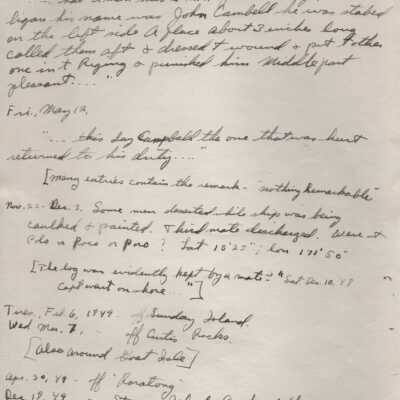 began his name was John Cambell he was stabed
on the left side A place about 3 inches long
called them aft & dressed t wound & put t other
one in t Riging & punished him Middle part
pleasant...."
Fri., May 12,
"... this day Campbell the one that was hurt
returned to his duty...."
[many entries contain the remark - "nothing Remarkable"
Nov. 22 - Dec. 2. Some men deserted while ship was being
caulked & painted. Third mate discharged. Were at
or Poro ? Lat 15°25"; lon 171°50"
[The log was evidently kept by a mate - "Sat Dec. 10, 48
Capt went on shore...."]
Tues, Feb. 6, 1849 - off Sunday Island.
Wed Mar. 7, - off Curtis Rocks.
[Also around Goat Isle]
Apr. 20, 49 - off "Rarotong"
Dec 18, 49